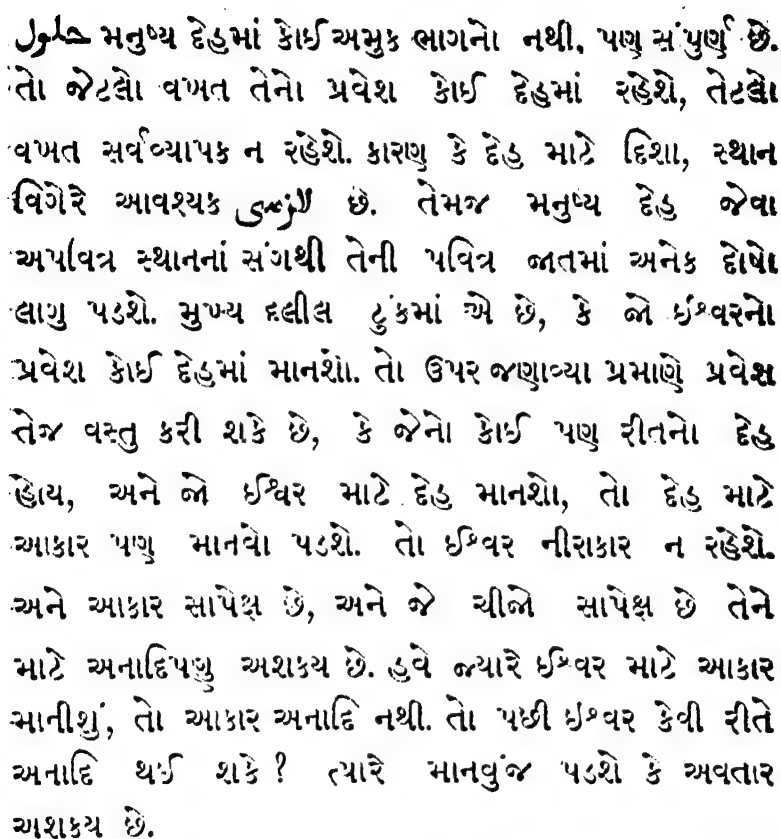 حلول મનુષ્ય દેહમાં કોઈ અમુક ભાગનો નથી, પણ સંપુર્ણ છે.
તો જેટલો વખત તેનો પ્રવેશ કોઈ દેહમાં રહેશે, તેટલો
વખત સર્વવ્યાપક ન રહેશે. કારણ કે દેહ માટે દિશા, સ્થાન
વિગેરે આવશ્યક لازمی છે. તેમજ મનુષ્ય દેહ જેવા
અપવિત્ર સ્થાનનાં સંગથી તેની પવિત્ર જાતમાં અનેક દોષો
લાગુ પડશે. મુખ્ય દલીલ ટુંકમાં એ છે, કે જો ઈશ્વરનો
પ્રવેશ કોઈ દેહમાં માનશો. તો ઉપર જણાવ્યા પ્રમાણે પ્રવેશ
તેજ વસ્તુ કરી શકે છે, કે જેનો કોઈ પણ રીતનો દેહ
હોય, અને જો ઈશ્વર માટે દેહ માનશો, તો દેહ માટે
આકાર પણ માનવો પડશે. તો ઈશ્વર નીરાકાર ન રહેશે.
અને આકાર સાપેક્ષ છે, અને જે ચીજો સાપેક્ષ છે તેને
માટે અનાદિપણુ અશકય છે. હવે જ્યારે ઈશ્વર માટે આકાર
માનીશું, તો આકાર અનાદિ નથી. તો પછી ઇશ્વર કેવી રીતે
અનાદિ થઈ શકે? ત્યારે માનવુંજ પડશે કે અવતાર
અશકય છે.